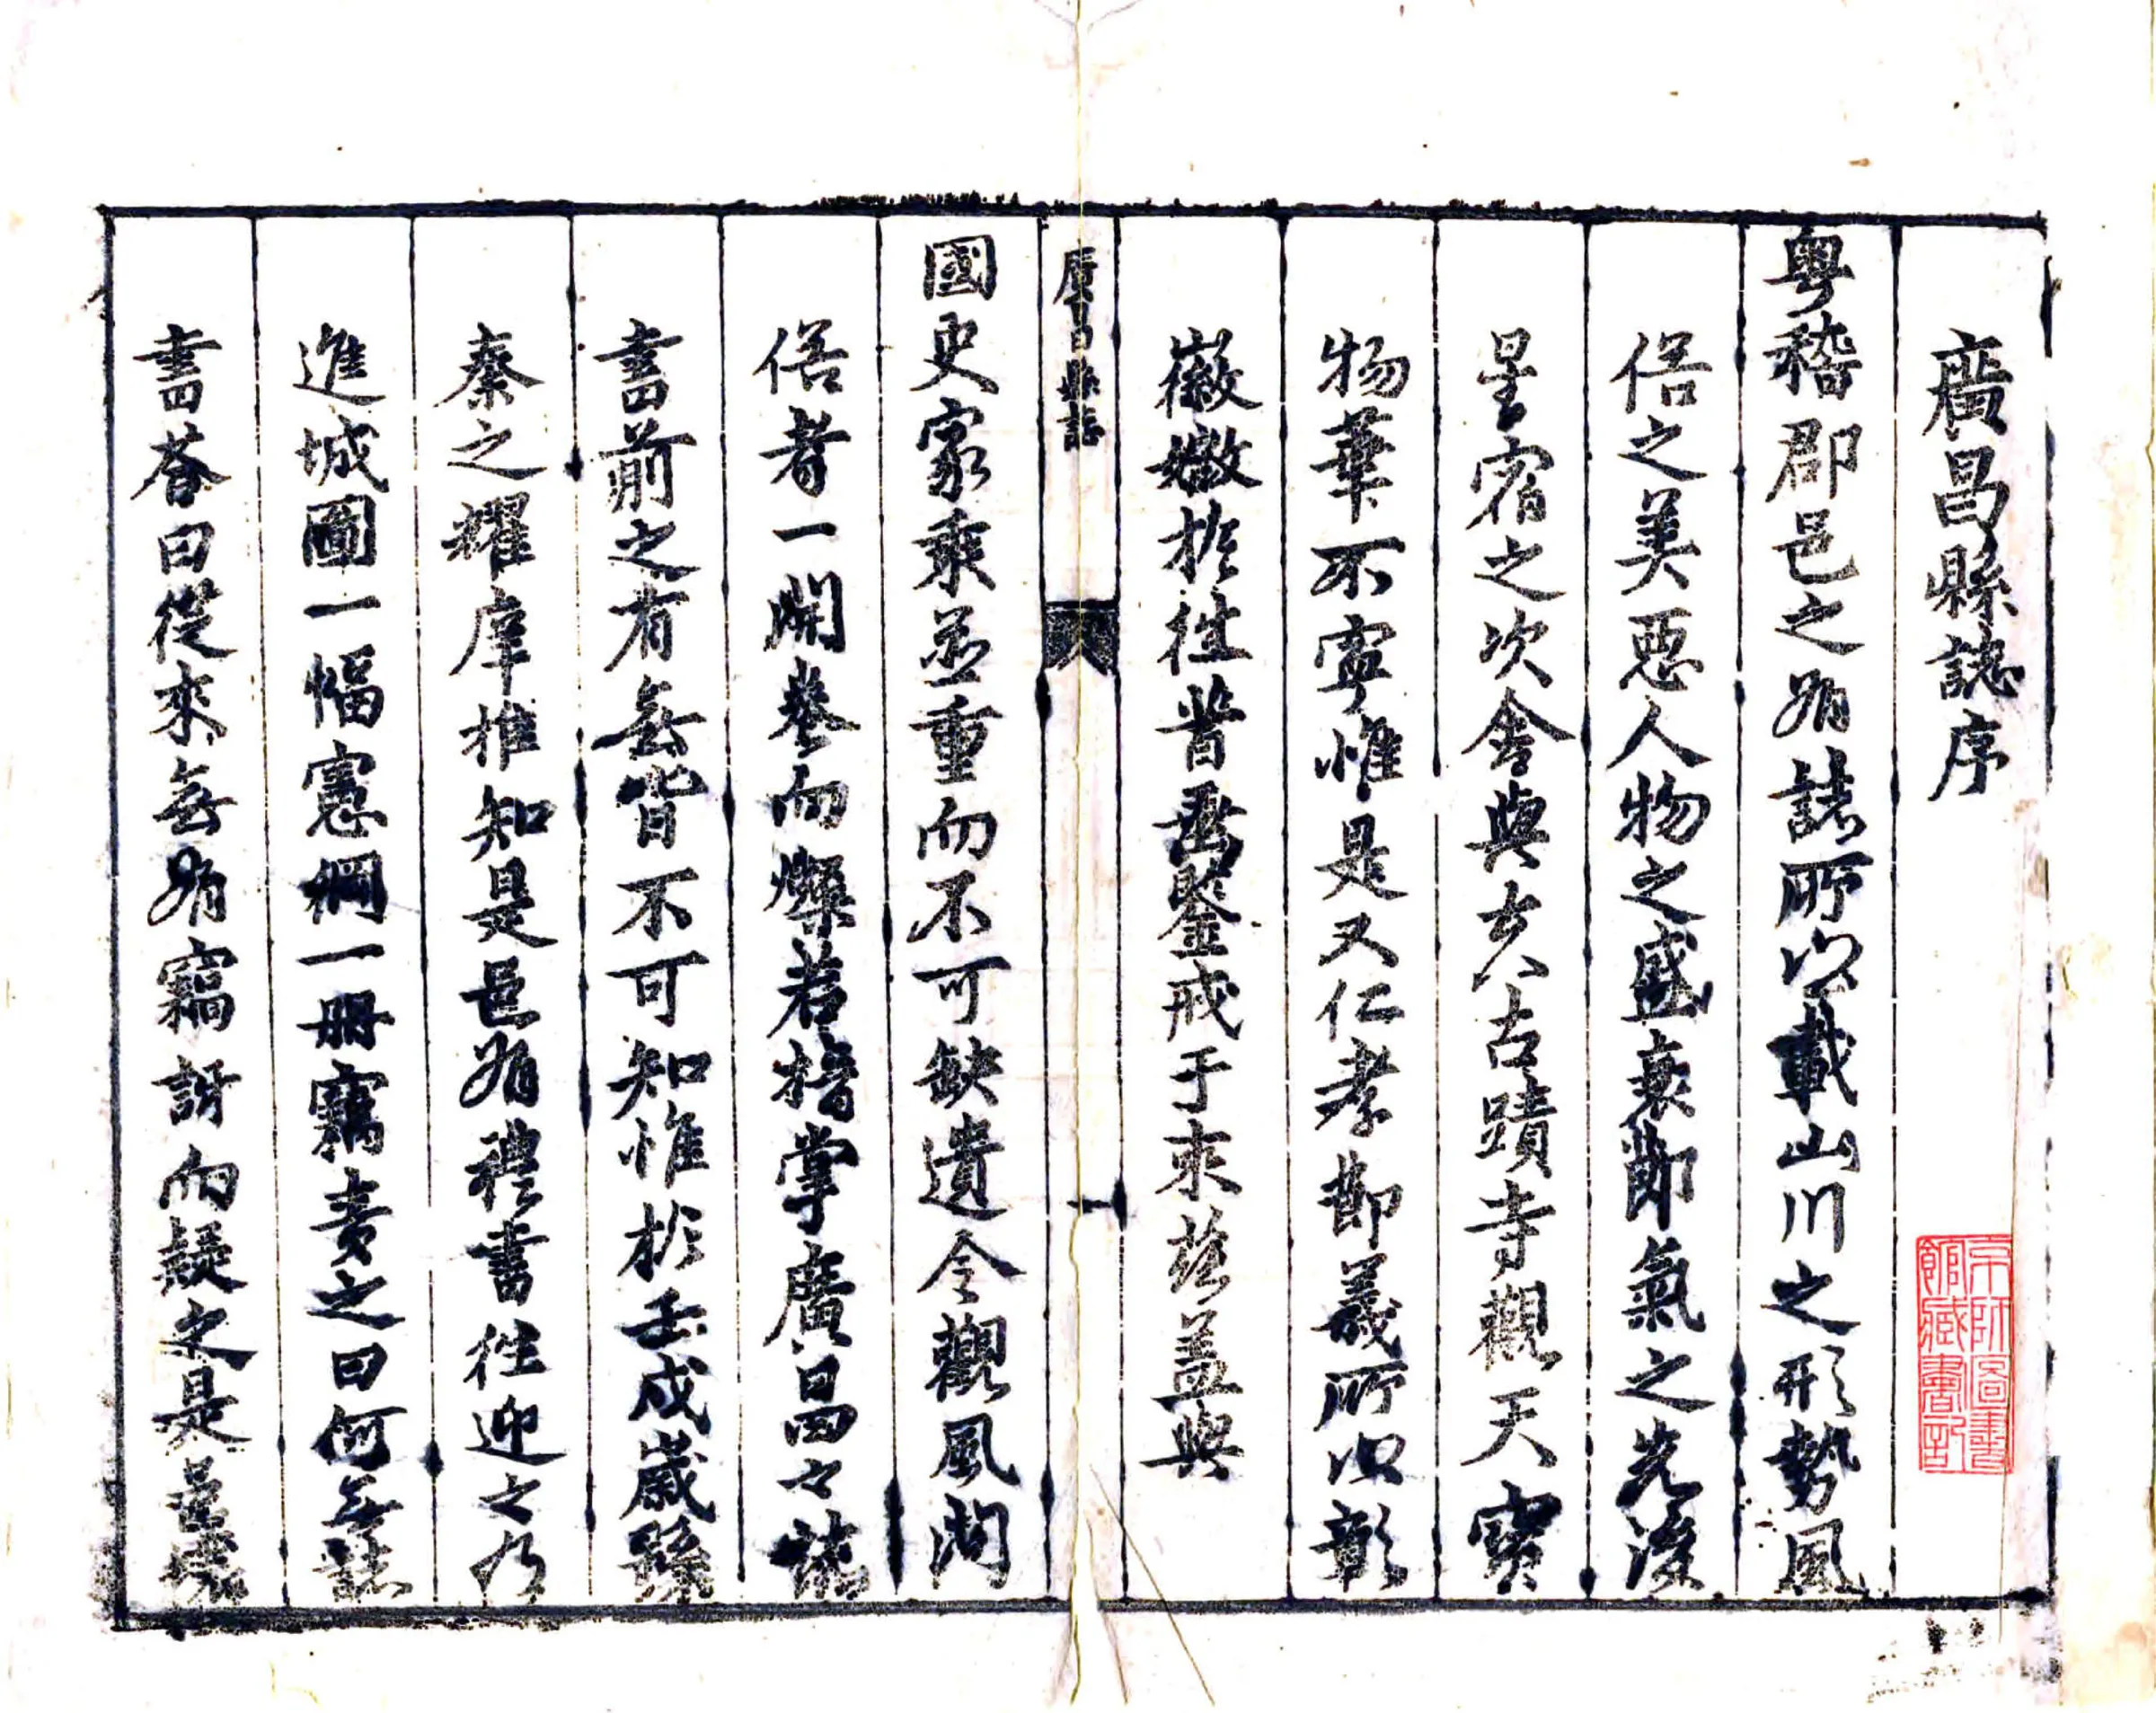 廣昌縣誌序
粤稽郡邑之有誌所以載山川之形勢風
俗之美惡人物之盛衰節氣之先後
星宿之次舍與夫古蹟寺觀天寶
物華不寧惟是又仁孝節義所以彰
徽媺於徃昔垂鑒戒于來兹盖與
廣昌縣誌
一
國史家乘並重而不可缺遺令觀風問
俗者一開卷而燦若指掌廣昌々誌
書前之有無皆不可知惟於壬戌歲孫
秦之耀庠推知是邑有禮書徃迎之乃
進城圖一幅憲綱一冊竊責之曰何無誌
書荅曰從來無有竊訝而疑之是
京師圖書館藏書記